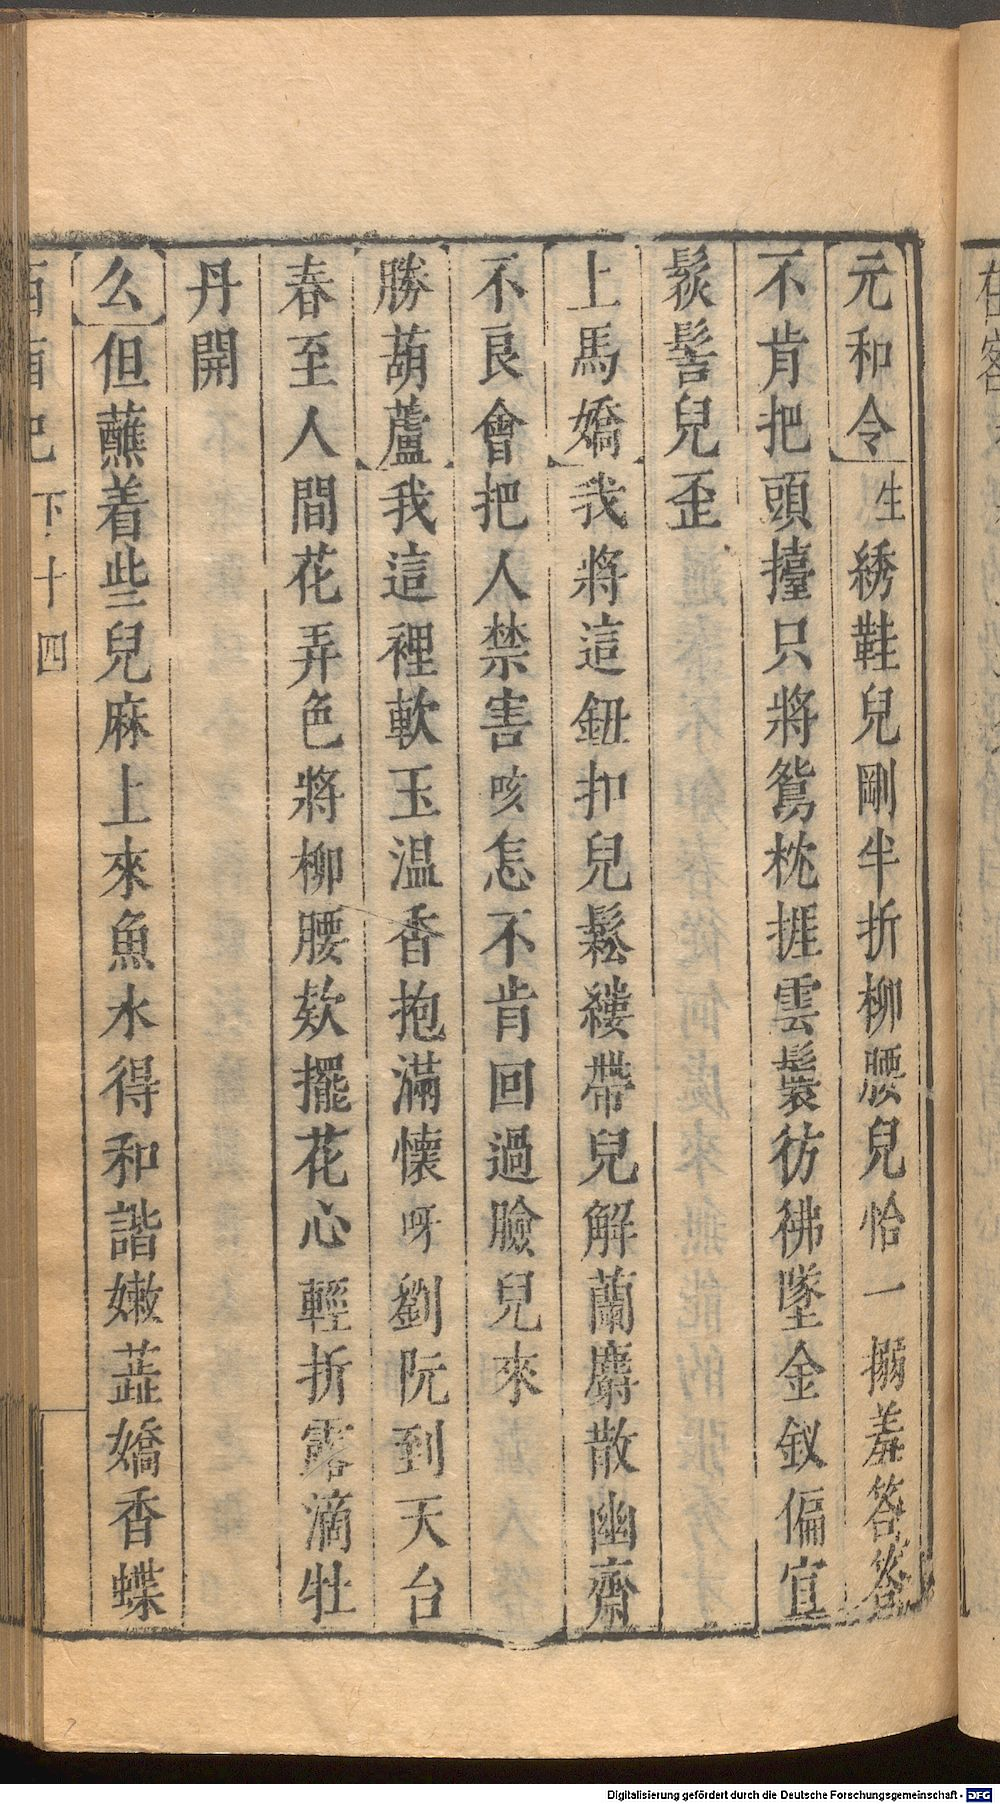 元和令生綉鞋兒剛半折柳腰兒恰一搦羞答答
不肯把頭擡只將鴛枕捱雲鬟彷彿墜金釵偏宜
鬆髻兒歪
上馬嬌我將這鈕扣兒鬆縷帶兒解蘭麝散幽齋
不良會把人禁害咳怎不肯回過臉兒來
勝葫蘆我這裡軟玉温香抱滿懷呀劉阮到天台
春至人間花弄色將柳腰欸擺花心輕折露滴牡
丹開
么但蘸着些兒麻上來魚水得和諧嫩蕋嬌香蝶
西廂記 下 十四
Digitalisierung gefördert durch die Deutsche Forschungsgemeinschaft - DFG